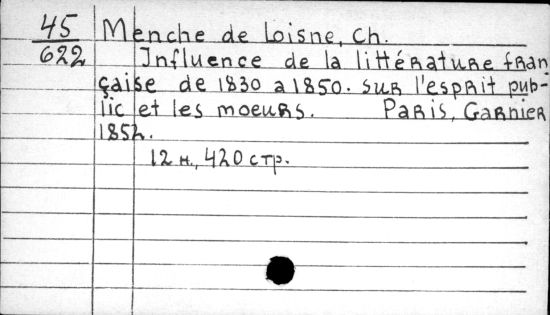 45 Menche de Loisne, Ch.
622 Influence de la littérature fran
çaise de 1830 a 1850. sur l'esprit pub-
lic et les moeurs. Paris, Garnier
1852.
12 н., 420 стр.